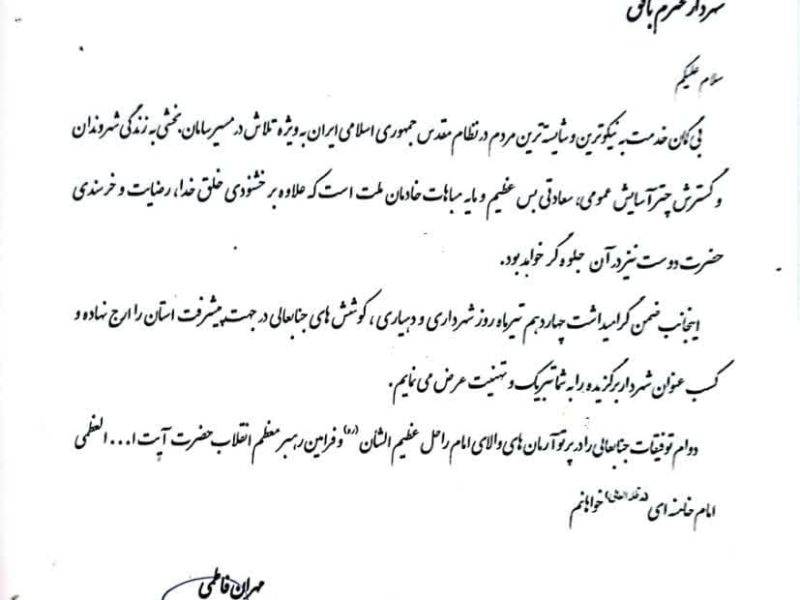 شهردار محترم بافق
سلام علیکم
بی گمان خدمت به نیکوترین و شایسته ترین مردم در نظام مقدس جمهوری اسلامی ایران به ویژه تلاش در مسیر سامان بخشی به زندگی شهروندان
و گسترش چتر آسایش عمومی، سعادتی بس عظیم و مایه مباهات خادمان ملت است که علاوه بر خشنودی خلق خدا، رضایت و خرسندی
حضرت دوست نیز در آن جلوه گر خواهد بود.
اینجانب ضمن گرامیداشت چهاردهم تیرماه روز شهرداری و دهیاری، کوشش های جنابعالی در جهت پیشرفت استان را ارج نهاده و
کسب عنوان شهردار برگزیده را به شما تبریک و تهنیت عرض می نمایم.
دوام توفیقات جنابعالی را در پرتو آرمان های والای امام راحل عظیم الشأن (ره) و فرامین رهبر معظم انقلاب حضرت آیت ا... العظمی
امام خامنه ای (مد ظله العالی) خواهانم
مهران فاطمی